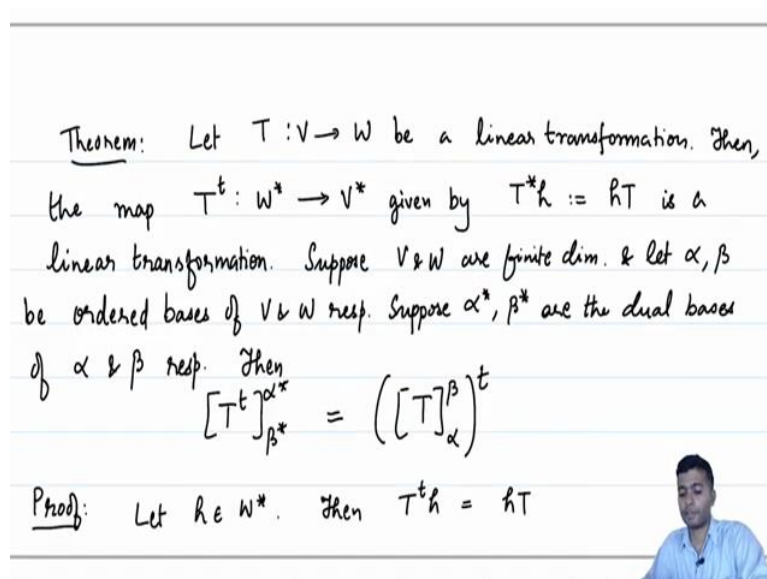 Theorem: Let T : V → W be a linear transformation. Then,
the map T^t : W* → V* given by T*h := hT is a
linear transformation. Suppose V & W are finite dim. & let α, β
be ordered bases of V & W resp. Suppose α*, β* are the dual bases
of α & β resp. Then
[T^t]_{β*}^{α*} = ([T]_α^β)^t
Proof: Let h ∈ W*. Then T^t h = hT